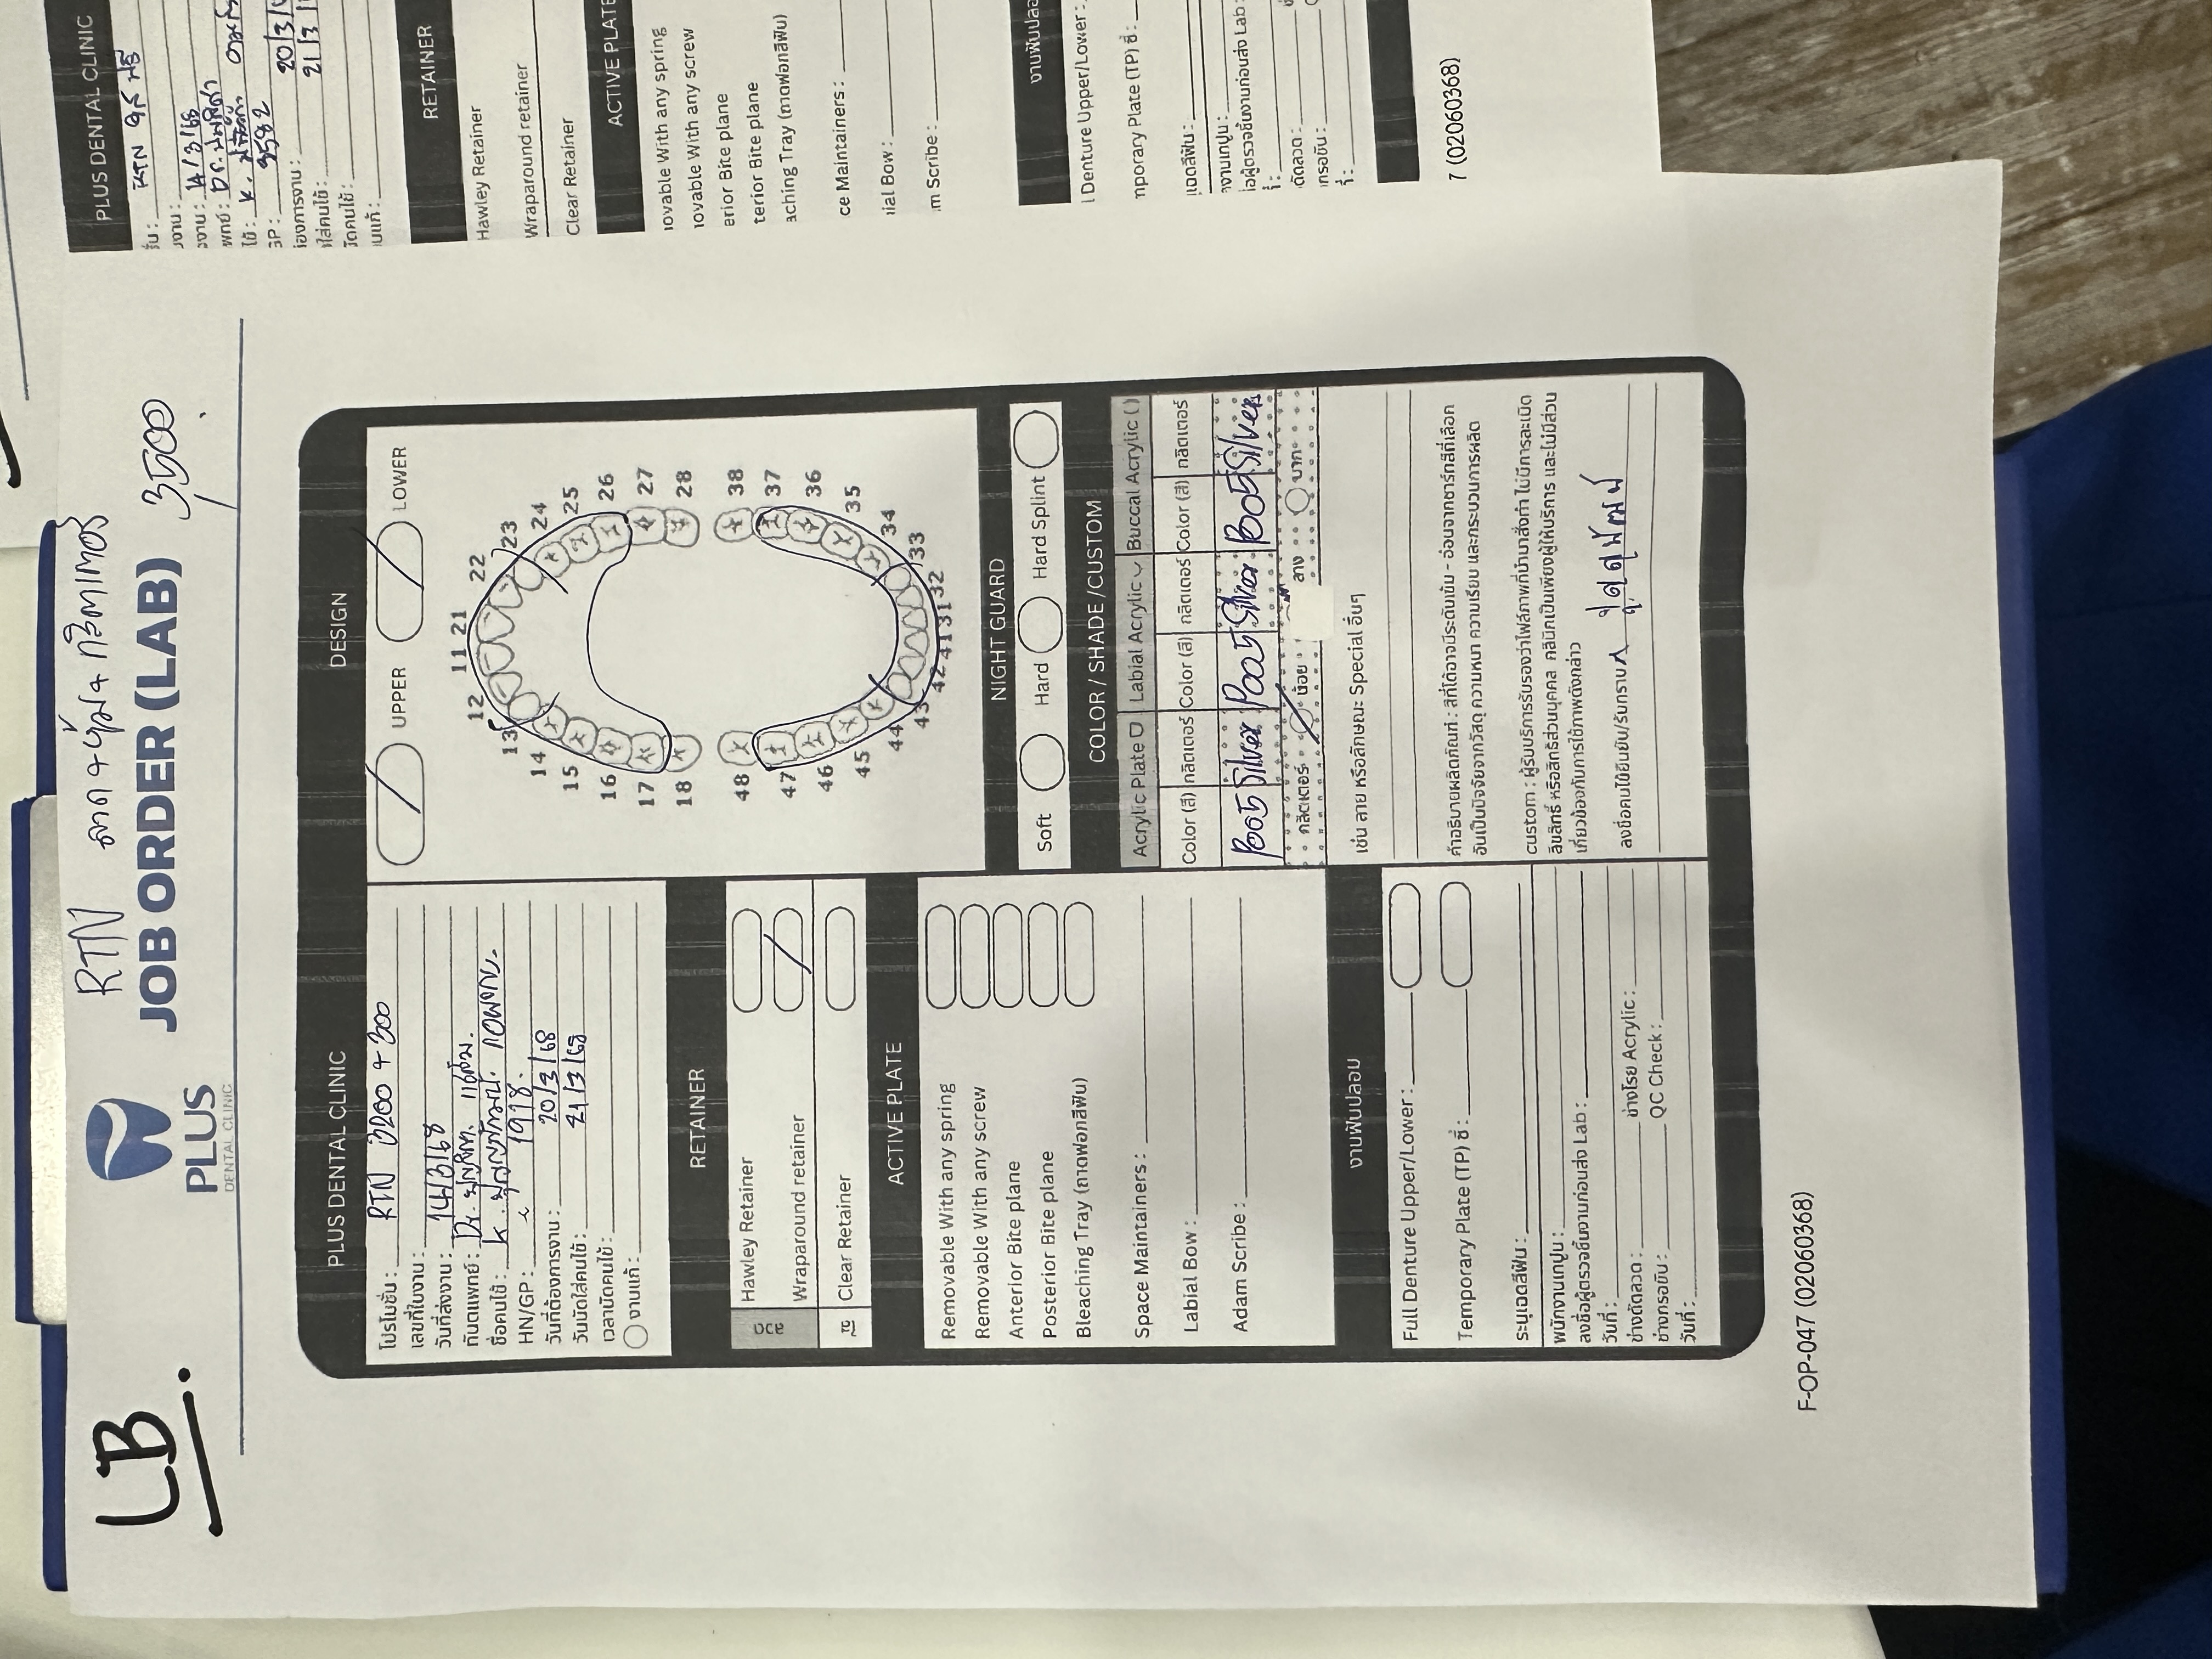 LB.
RTN ลวด + หุ้ม + กลิตเตอร์
PLUS
DENTAL CLINIC
JOB ORDER (LAB)
3500
PLUS DENTAL CLINIC
โปรโมชั่น : RTN 3200 + 300
เลขที่ใบงาน :
วันที่ส่งงาน : 14/3/68
ทันตแพทย์ : Dr.
ชื่อคนไข้ : K.
HN/GP : 1918.
วันที่ต้องการงาน : 20/3/68
วันนัดใส่คนไข้ : 21/3/68
เวลานัดคนไข้ :
งานแก้ :
RETAINER
ลวด
Hawley Retainer
Wraparound retainer
ใส
Clear Retainer
ACTIVE PLATE
Removable With any spring
Removable With any screw
Anterior Bite plane
Posterior Bite plane
Bleaching Tray (ถาดฟอกสีฟัน)
Space Maintainers :
Labial Bow :
Adam Scribe :
งานฟันปลอม
Full Denture Upper/Lower :
Temporary Plate (TP) ซี่ :
ระบุเฉดสีฟัน :
พนักงานเทปูน :
ลงชื่อผู้ตรวจชิ้นงานก่อนส่ง Lab :
วันที่ :
ช่างดัดลวด : ช่างโรย Acrylic :
ช่างกรอขัน : QC Check :
วันที่ :
DESIGN
UPPER LOWER
11 21
12 22
13 23
14 24
15 25
16 26
17 27
18 28
48 38
47 37
46 36
45 35
44 34
43 33
42 41 31 32
NIGHT GUARD
Soft Hard Hard Splint
COLOR / SHADE /CUSTOM
Acrylic Plate Labial Acrylic Buccal Acrylic ( )
Color (สี) กลิตเตอร์ Color (สี) กลิตเตอร์ Color (สี) กลิตเตอร์
P005 Silver P005 Silver P005 Silver
กลิตเตอร์ น้อย ลาง มาก
เช่น ลาย หรือลักษณะ Special อื่นๆ
คำอธิบายผลิตภัณฑ์ : สีที่ได้อาจมีระดับเข้ม - อ่อนจากชาร์ทสีที่เลือก
อันเป็นปัจจัยจากวัสดุ ความหนา ความเรียบ และกระบวนการผลิต
custom : ผู้รับบริการรับรองว่าไฟล์ภาพที่นำมาสั่งทำ ไม่มีการละเมิด
ลิขสิทธิ์ หรือสิทธิส่วนบุคคล คลินิกเป็นเพียงผู้ให้บริการ และไม่มีส่วน
เกี่ยวข้องกับการใช้ภาพดังกล่าว
ลงชื่อคนไข้ยืนยัน/รับทราบ
F-OP-047 (02060368)
PLUS DENTAL CLINIC
RTN ใส ฟรี
14/3/68
Dr.
K.
3582
20/3/
21/3/
RETAINER
Hawley Retainer
Wraparound retainer
Clear Retainer
ACTIVE PLATE
ovable With any spring
ovable With any screw
erior Bite plane
terior Bite plane
aching Tray (ถาดฟอกสีฟัน)
ce Maintainers :
ial Bow :
m Scribe :
งานฟันปลอ
l Denture Upper/Lower :
mporary Plate (TP) ซี่ :
7 (02060368)